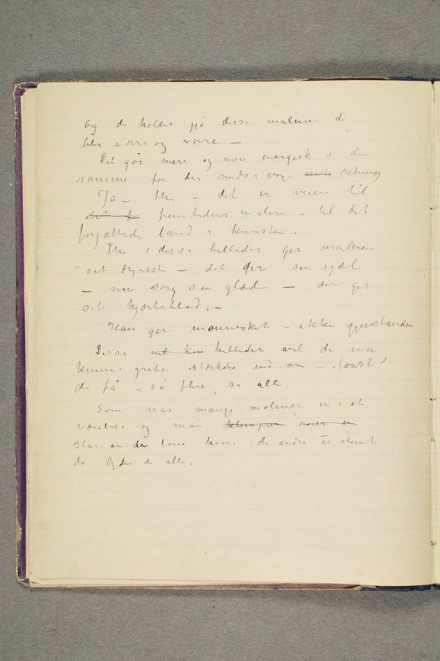 og de holder på disse malerne de
blir verre og verre —
Det går mere og mere energisk i den
samme for den sunde vrøvl retning
Ja — ttti — det er veien til
fremtidens maleri — til det
forjættede land i kunsten.
Ttti i disse billeder gir maleren
sit dyreste — det gir sin sjæl
— sin sorg sin glæde — den gir
sit hjerteblod. —
Han gir mennesket — ikke gjenstanden
Disse billeder vil de må
kunne gribe stærkere ind — først
de få — så flere, så alle.
Som når mange violiner er i et
værelse og man
slår an den tone hvori de andre er stemt
da lyder de alle.